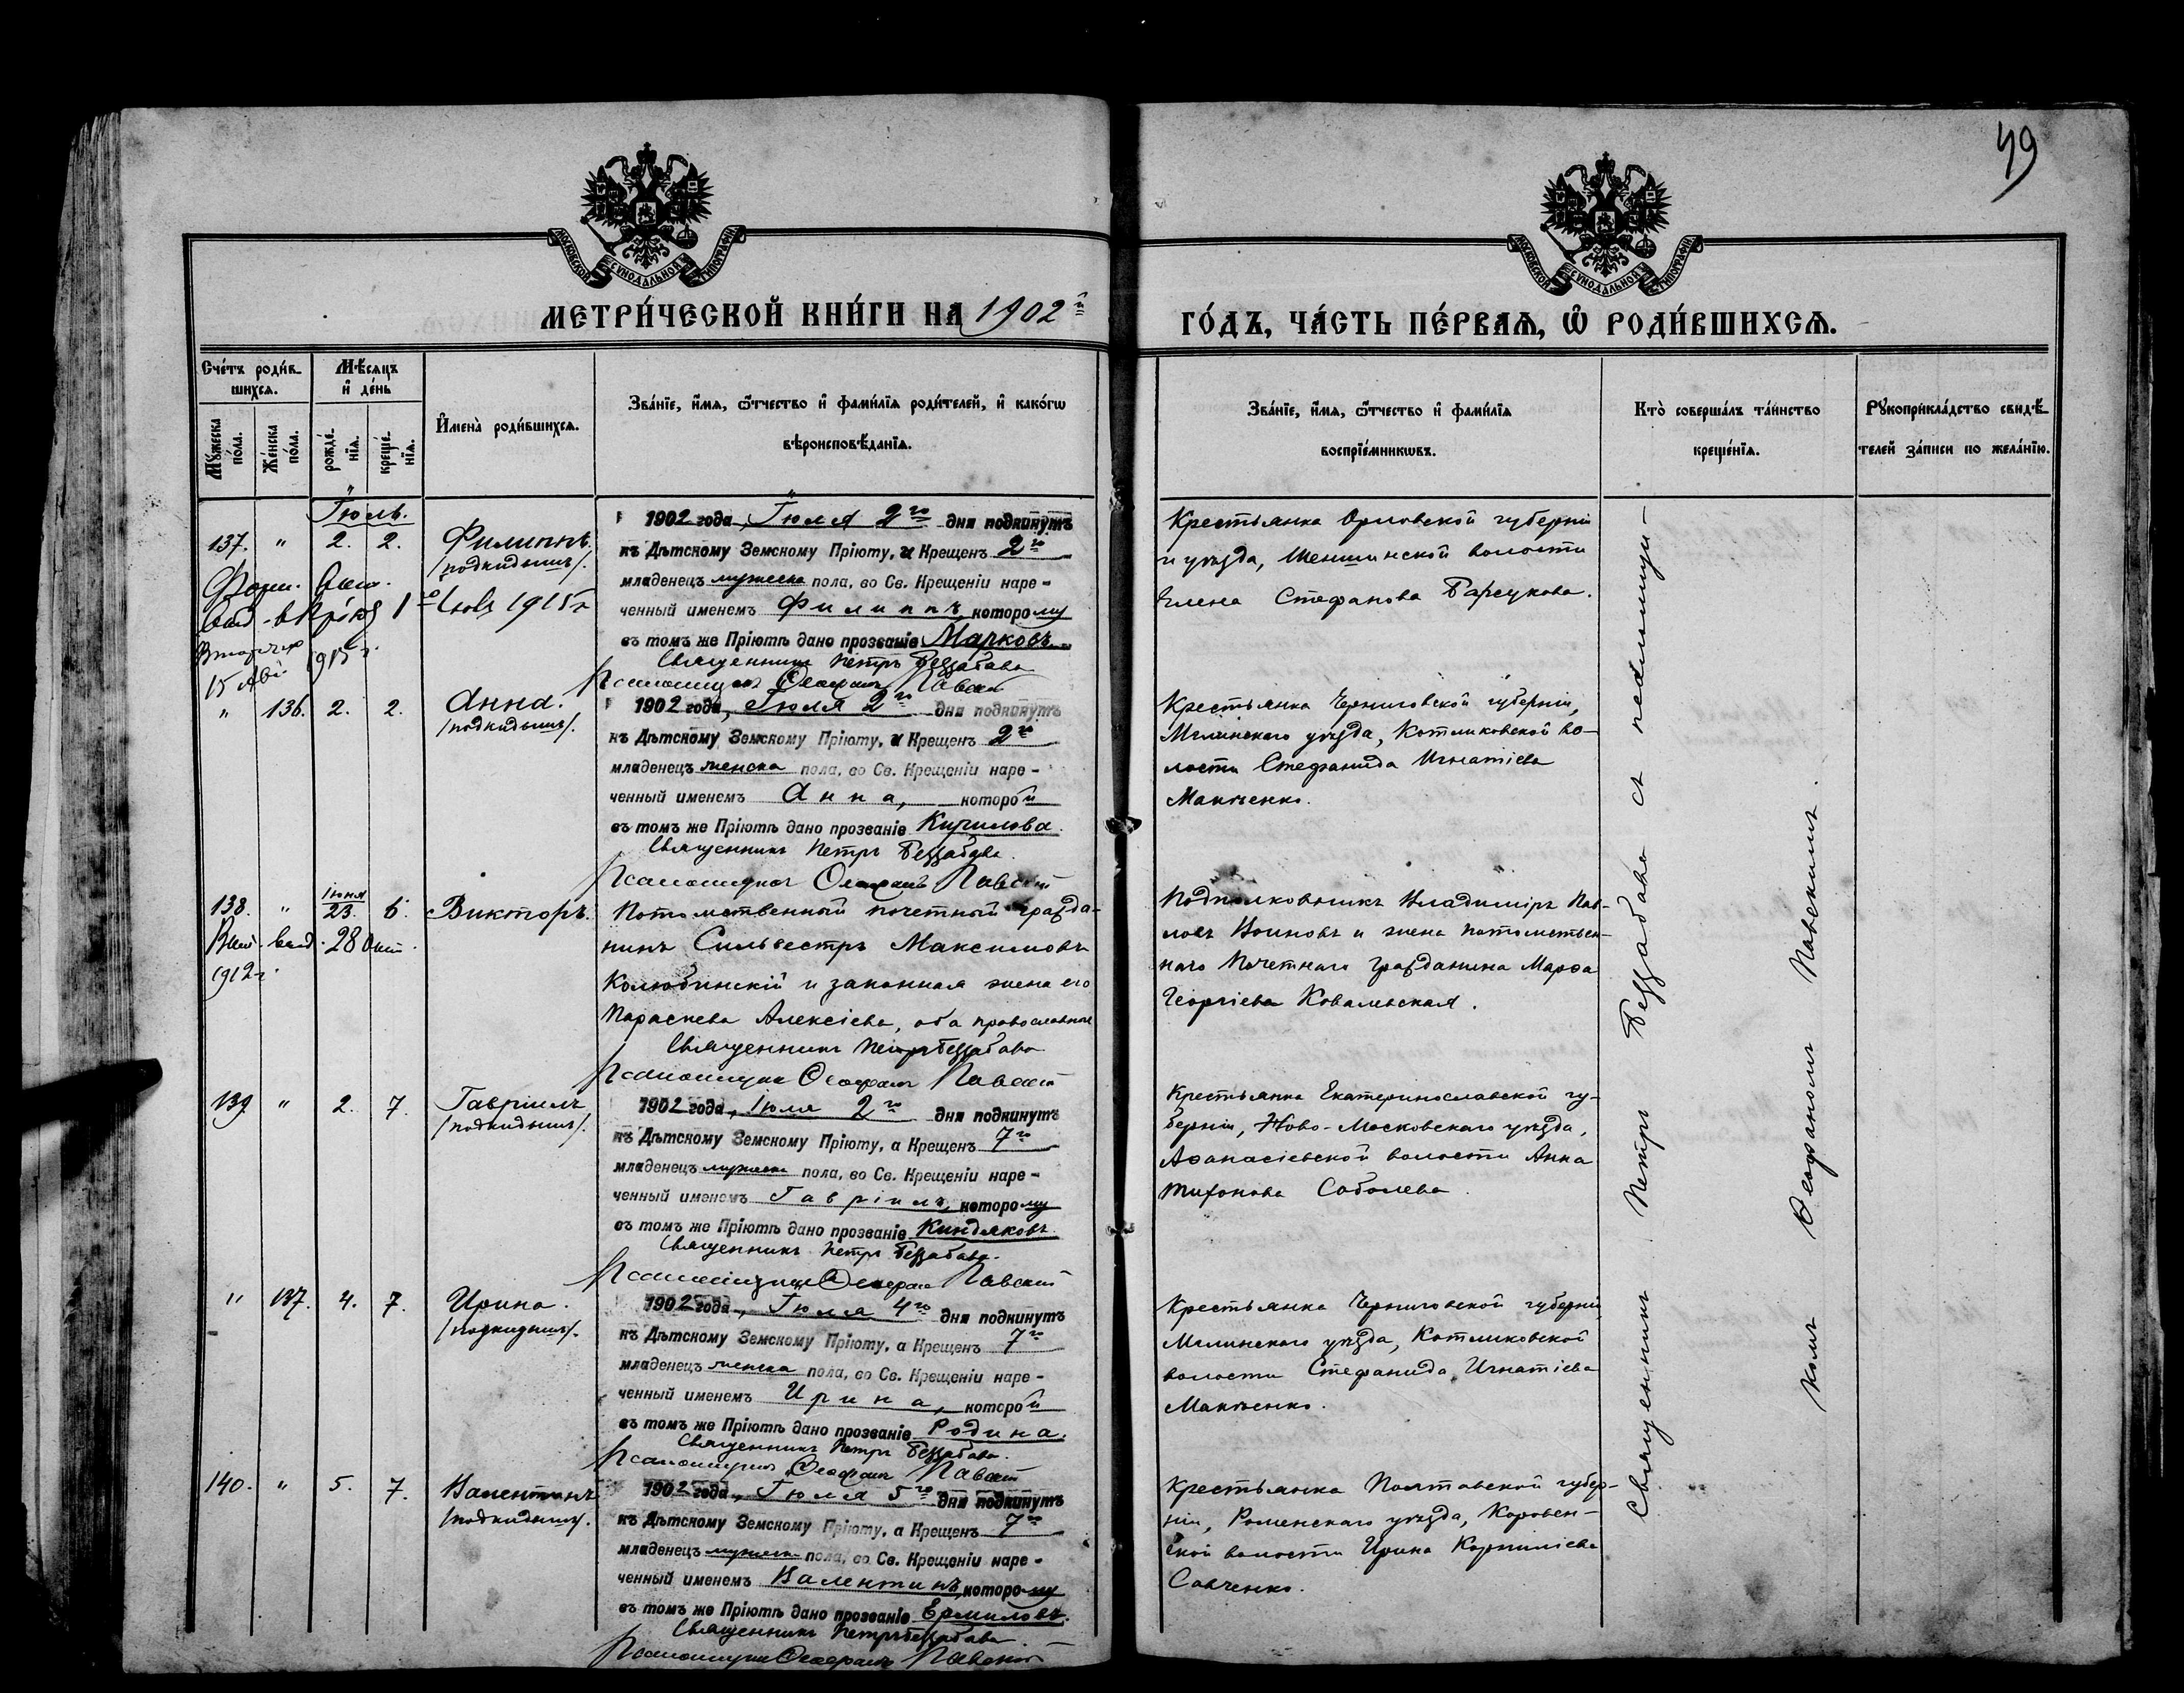 49
МОСКОВСКОЙ СѴНОДАЛЬНОЙ ТИПОГРАФІИ
МОСКОВСКОЙ СѴНОДАЛЬНОЙ ТИПОГРАФІИ
МЕТРИ́ЧЕСКОЙ КНИ́ГИ НА 1902й
ГО́ДЪ, ЧА́СТЬ ПЕ́РВАѦ, Ѡ РОДИ́ВШИХСѦ.
Сче́тъ роди́в-
шихсѧ.
Мꙋ́жеска
по́ла.
Же́нска
по́ла.
Мѣ́сѧцъ
и҆ де́нь
рожде́-
нїѧ.
креще́-
нїѧ.
И҆мена̀ роди́вшихсѧ.
Зва́нїе, и҆́мѧ, ѻ҆́тчество и҆ фами́лїѧ роди́телей, и҆ како́гѡ
вѣроисповѣ́данїѧ.
Зва́нїе, и҆́мѧ, ѻ҆́тчество и҆ фами́лїѧ
воспрїе́мникѡвъ.
Кто̀ соверша́лъ та́инство
креще́нїѧ.
Рꙋкоприкла́дство свидѣ́-
телей за́писи по жела́нїю.
Іюль.
137. " 2. 2.
Филиппъ
/подкидышъ/.
1915 г.
15 Авг. 1915 г.
1902 года, Іюля 2го дня подкинутъ
къ Дѣтскому Земскому Пріюту, и Крещенъ 2го
младенецъ мужеска пола, во Св. Крещеніи наре-
ченный именемъ Филиппъ, которому
въ томъ же Пріютѣ дано прозваніе Марковъ.
Священникъ Петръ Беззабава
Псаломщикъ Ѳеофанъ Павскій
Крестьянка Орловской губерніи
и уѣзда, Меншинской волости
Елена Стефанова Барсукова.
" 136. 2. 2.
Анна.
/подкидышъ/.
1902 года, Іюля 2го дня подкинутъ
къ Дѣтскому Земскому Пріюту, и Крещенъ 2го
младенецъ женска пола, во Св. Крещеніи наре-
ченный именемъ Анна, которой
въ томъ же Пріютѣ дано прозваніе Кирилова.
Священникъ Петръ Беззабава.
Псаломщикъ Ѳеофанъ Павскій
Крестьянка Черниговской губерніи,
Мглинскаго уѣзда, Котляковской во-
лости Стефанида Игнатіева
Макѣенко.
138. " Іюня 23. 6.
Викторъ.
28 Окт.
1912 г.
Потомственный почетный гражда-
нинъ Сильвестръ Максимовъ
Колюбинскій и законная жена его
Параскева Алексіева, оба православные
Священникъ Петръ Беззабава
Псаломщикъ Ѳеофанъ Павскій
Подполковникъ Владиміръ Пав-
ловъ Воиновъ и жена потомствен-
наго Почетнаго гражданина Марѳа
Георгіева Ковалевская.
139 " 2. 7.
Гавріилъ
/подкидышъ/.
1902 года, Іюля 2го дня подкинутъ
къ Дѣтскому Земскому Пріюту, а Крещенъ 7го
младенецъ мужеска пола, во Св. Крещеніи наре-
ченный именемъ Гавріилъ, которому
въ томъ же Пріютѣ дано прозваніе Киндяковъ.
Священникъ Петръ Беззабава.
Псаломщикъ Ѳеофанъ Павскій
Крестьянка Екатеринославской гу-
берніи, Ново-Московскаго уѣзда,
Аѳанасіевской волости Анна
Тихонова Соболева.
" 137. 4. 7.
Ирина.
/подкидышъ/.
1902 года, Іюля 4го дня подкинутъ
къ Дѣтскому Земскому Пріюту, а Крещенъ 7го
младенецъ женска пола, во Св. Крещеніи наре-
ченный именемъ Ирина, которой
въ томъ же Пріютѣ дано прозваніе Родина.
Священникъ Петръ Беззабава.
Псаломщикъ Ѳеофанъ Павскій
Крестьянка Черниговской губерніи
Мглинскаго уѣзда, Котляковской
волости Стефанида Игнатіева
Макѣенко.
140. " 5. 7.
Валентинъ
/подкидышъ/.
1902 года, Іюля 5го дня подкинутъ
къ Дѣтскому Земскому Пріюту, а Крещенъ 7го
младенецъ мужеска пола, во Св. Крещеніи наре-
ченный именемъ Валентинъ, которому
въ томъ же Пріютѣ дано прозваніе Ермиловъ.
Священникъ Петръ Беззабава.
Псаломщикъ Ѳеофанъ Павскій
Крестьянка Полтавской губер-
ніи, Роменскаго уѣзда, Коровен-
ской волости Ирина Корниліева
Савченко.
Священникъ Петръ Беззабава съ псаломщи-
комъ Ѳеофаномъ Павскимъ.